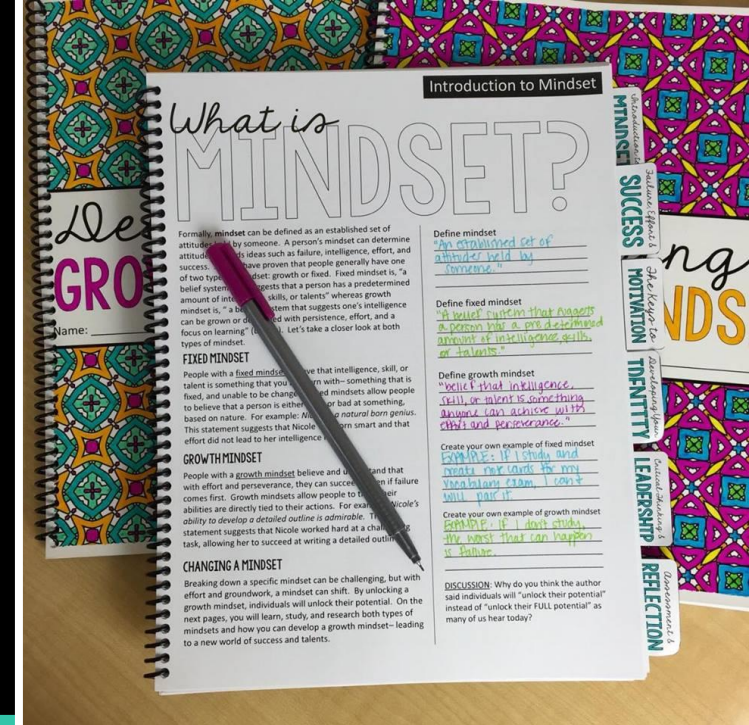 Introduction to Mindset
What is
MINDSET?
Formally, mindset can be defined as an established set of
attitudes by someone. A person's mindset can determine
attitude ds ideas such as failure, intelligence, effort, and
success. have proven that people generally have one
of two typ dset: growth or fixed. Fixed mindset is, "a
belief system gests that a person has a predetermined
amount of inte skills, or talents" whereas growth
mindset is, "a be tem that suggests one's intelligence
can be grown or d ed with persistence, effort, and a
focus on learning" ). Let's take a closer look at both
types of mindset.
FIXED MINDSET
People with a fixed mindse ve that intelligence, skill, or
talent is something that you rn with– something that is
fixed, and unable to be chang ed mindsets allow people
to believe that a person is either or bad at something,
based on nature. For example: Ni a natural born genius.
This statement suggests that Nicole rn smart and that
effort did not lead to her intelligence
GROWTH MINDSET
People with a growth mindset believe and u tand that
with effort and perseverance, they can succee en if failure
comes first. Growth mindsets allow people to t eir
abilities are directly tied to their actions. For exam Nicole's
ability to develop a detailed outline is admirable. Th
statement suggests that Nicole worked hard at a chal
task, allowing her to succeed at writing a detailed outlin
CHANGING A MINDSET
Breaking down a specific mindset can be challenging, but with
effort and groundwork, a mindset can shift. By unlocking a
growth mindset, individuals will unlock their potential. On the
next pages, you will learn, study, and research both types of
mindsets and how you can develop a growth mindset– leading
to a new world of success and talents.
Define mindset
"An established set of
attitudes held by
someone."
Define fixed mindset
"A belief system that suggests
a person has a predetermined
amount of intelligence, skills,
or talents."
Define growth mindset
"belief that intelligence,
skill, or talent is something
anyone can achieve with
effort and perseverance."
Create your own example of fixed mindset
EXAMPLE: If I study and
create note cards for my
vocabulary exam, I can't
will pass it.
Create your own example of growth mindset
EXAMPLE: If I don't study,
the worst that can happen
is failure.
DISCUSSION: Why do you think the author
said individuals will "unlock their potential"
instead of "unlock their FULL potential" as
many of us hear today?
Introduction to
MINDSET
Failure, Effort &
SUCCESS
The Keys to
MOTIVATION
Developing Your
IDENTITY
Critical Thinking &
LEADERSHIP
Assessment &
REFLECTION
De
GRO
Name:
ng
NDS